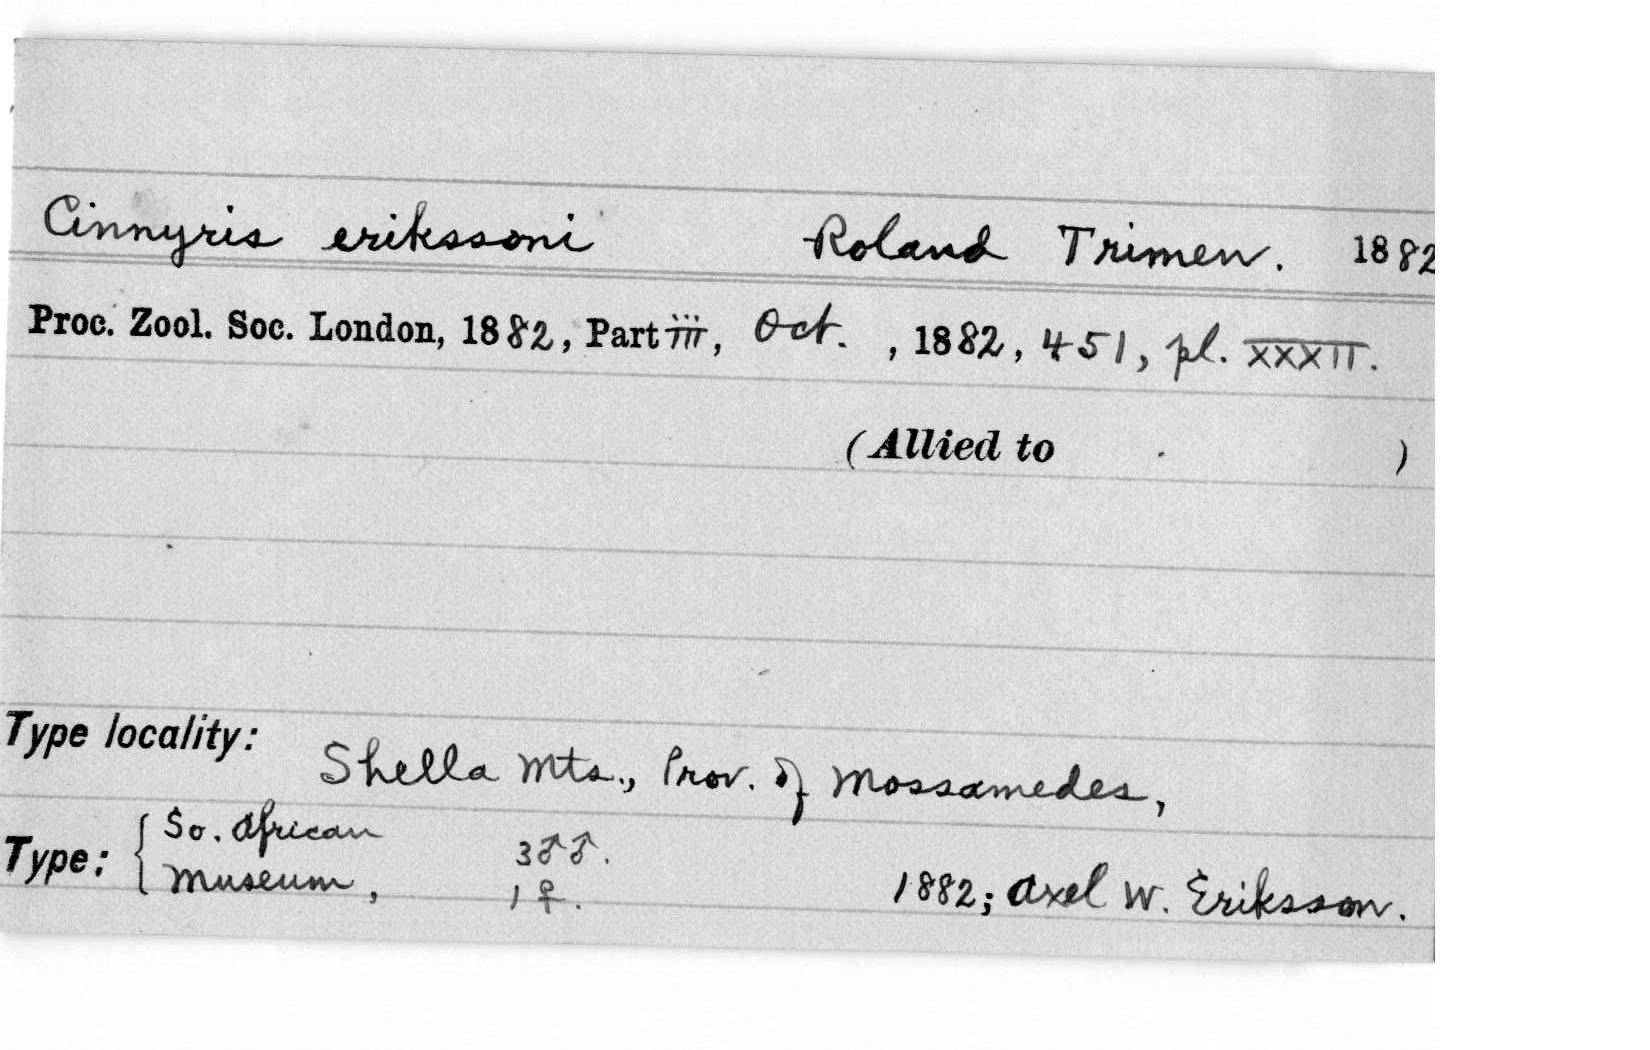 Cinnyris erikssoni Roland Trimen. 1882
Proc. Zool. Soc. London, 1882, Part iii, Oct. , 1882, 451, pl. XXXII.
(Allied to )
Type locality:
Shella Mts., Prov. of Mossamedes,
So. African 3♂♂.
Type: { Museum, 1♀. 1882; Axel W. Eriksson.